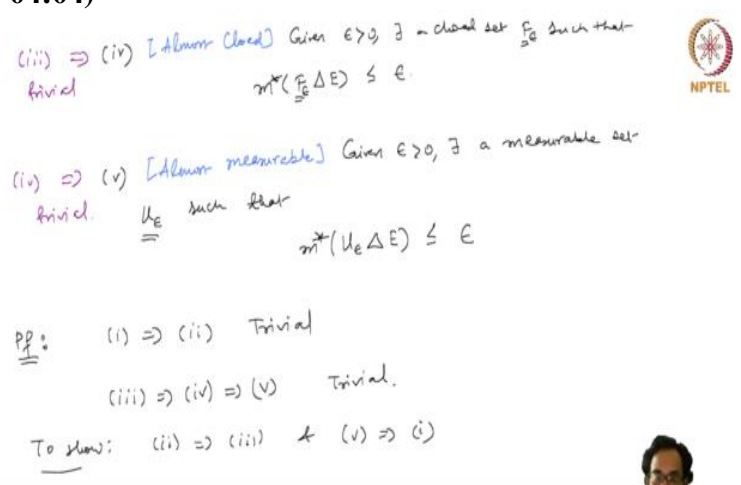 04:04)
(iii) ⇒ (iv) [Almost Closed] Given ϵ>0, ∃ a closed set F_ϵ such that
trivial
m*(F_ϵ Δ E) ≤ ϵ.
NPTEL
(iv) ⇒ (v) [Almost measurable] Given ϵ>0, ∃ a measurable set
trivial. U_ϵ such that
m*(U_ϵ Δ E) ≤ ϵ
Pf: (i) ⇒ (ii) Trivial
(iii) ⇒ (iv) ⇒ (v) Trivial.
To show: (ii) ⇒ (iii) & (v) ⇒ (i)